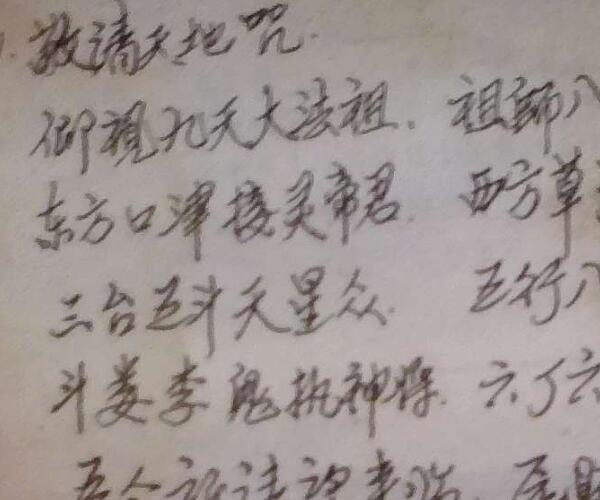 敬请天地咒.
仰视九天大法祖. 祖師八
东方口津接灵帝君. 西方草
三台五斗天星众. 五行八
斗娄李鬼执神将. 六丁六
五